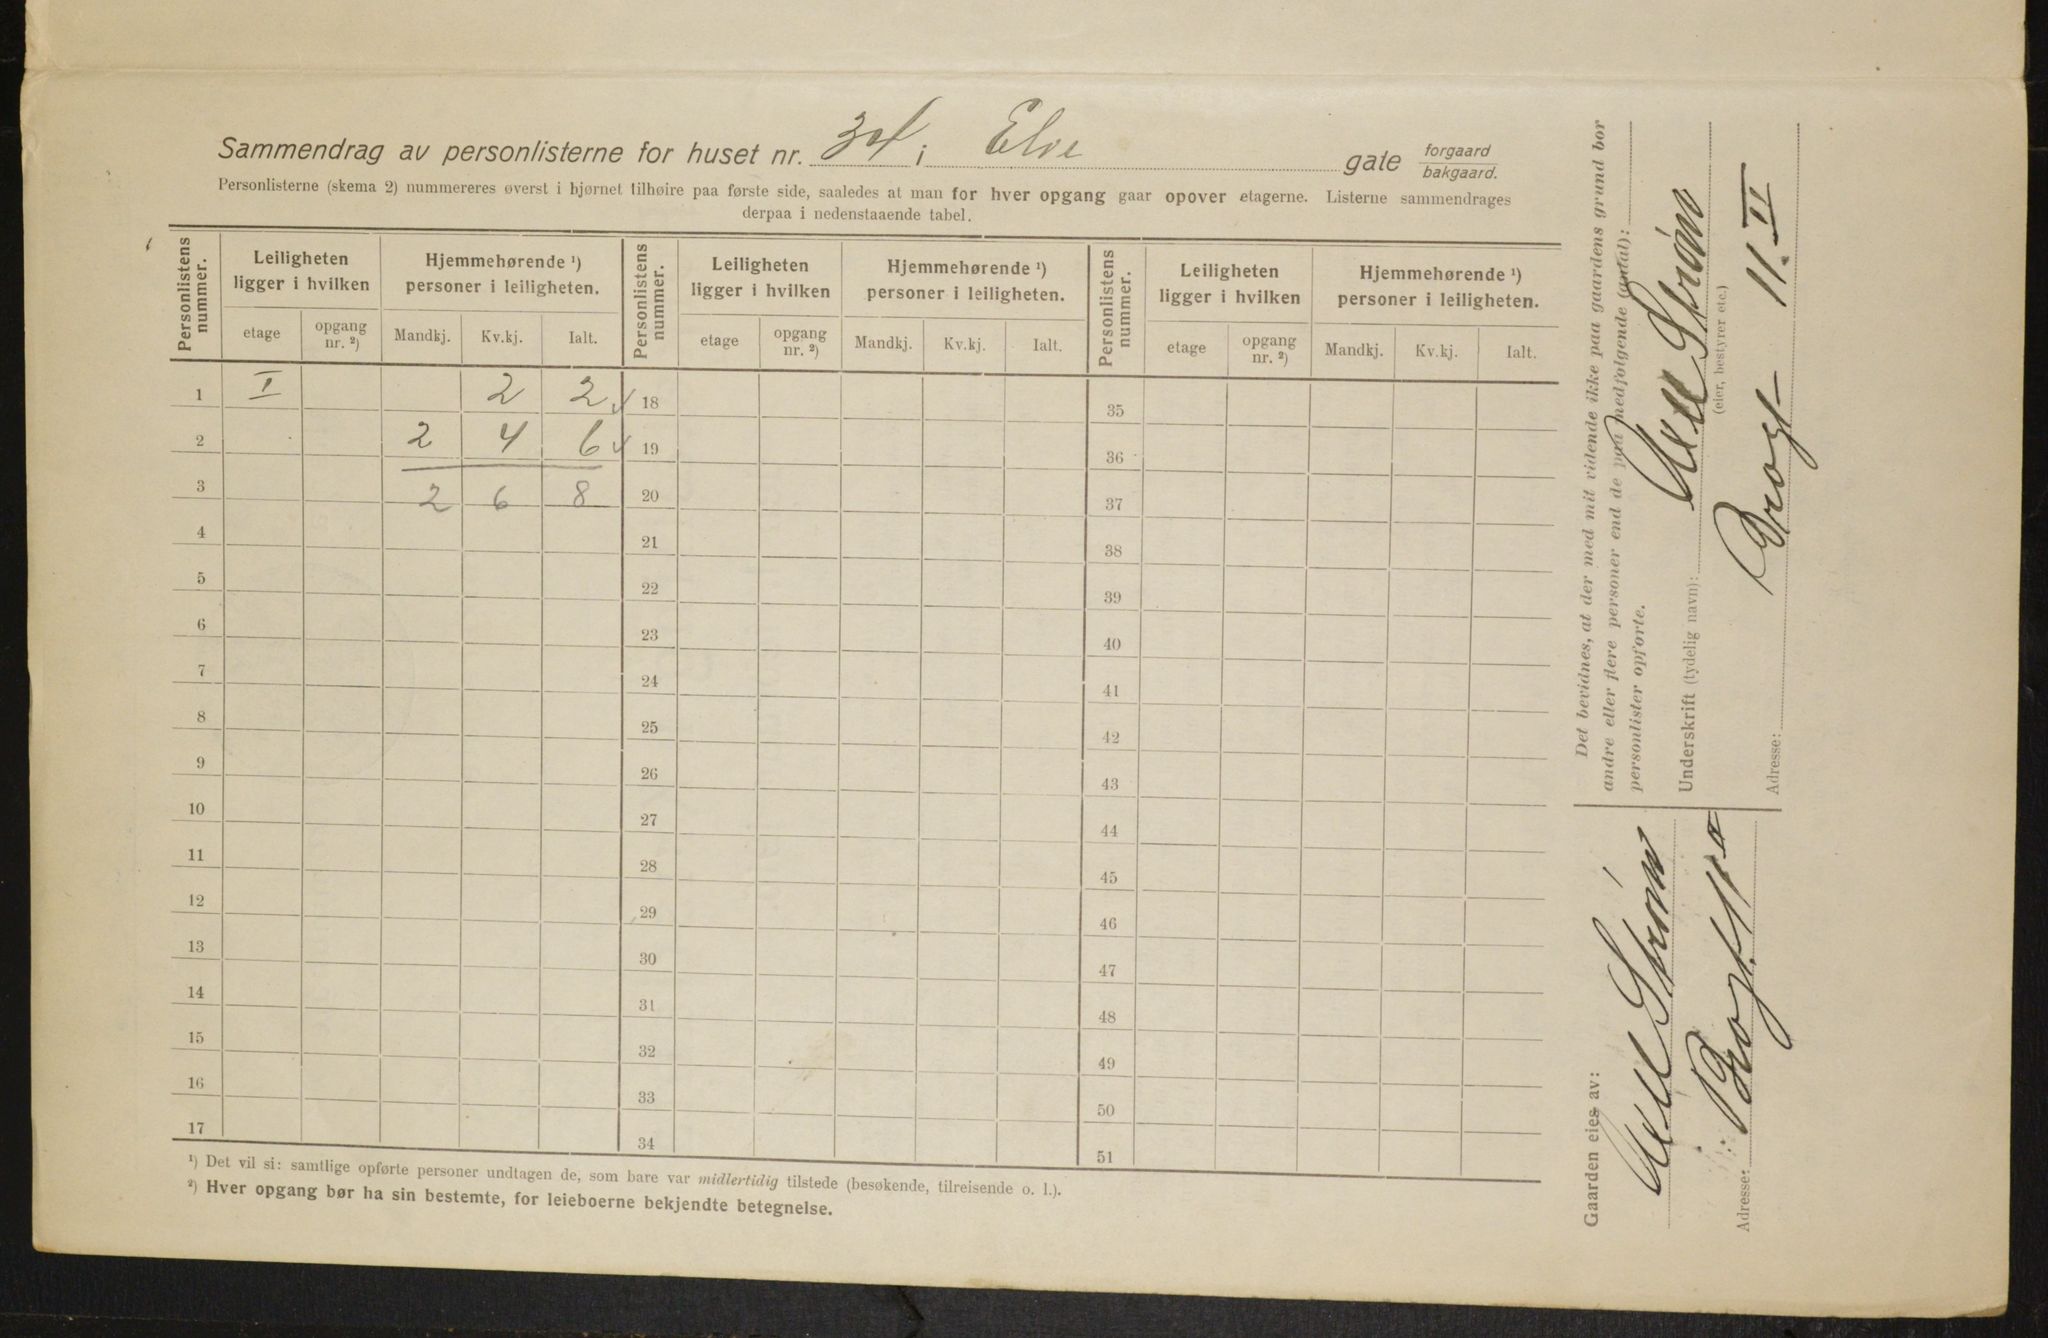 Sammendrag av personlisterne for huset nr. 34 i Elve gate forgaard
bakgaard.
Personlisterne (skema 2) nummereres øverst i hjørnet tilhøire paa første side, saaledes at man for hver opgang gaar opover etagerne. Listerne sammendrages
derpaa i nedenstaaende tabel.
Personlistens nummer. Leiligheten ligger i hvilken Hjemmehørende ¹) personer i leiligheten. Personlistens nummer. Leiligheten ligger i hvilken Hjemmehørende ¹) personer i leiligheten. Personlistens nummer. Leiligheten ligger i hvilken Hjemmehørende ¹) personer i leiligheten.
etage opgang nr. ²) Mandkj. Kv.kj. Ialt. etage opgang nr. ²) Mandkj. Kv.kj. Ialt. etage opgang nr. ²) Mandkj. Kv.kj. Ialt.
1 I 2 2 18 35
2 2 4 6 19 36
3 2 6 8 20 37
4 21 38
5 22 39
6 23 40
7 24 41
8 25 42
9 26 43
10 27 44
11 28 45
12 29 46
13 30 47
14 31 48
15 32 49
16 33 50
17 34 51
¹) Det vil si: samtlige opførte personer undtagen de, som bare var midlertidig tilstede (besøkende, tilreisende o. l.).
²) Hver opgang bør ha sin bestemte, for leieboerne bekjendte betegnelse.
Det bevidnes, at der med mit vidende ikke paa gaardens grund bor
andre eller flere personer end de paa medfølgende (antal):
personlister opførte.
Underskrift (tydelig navn): Axel Strøm
(eier, bestyrer etc.)
Adresse: 11. II
Gaarden eies av:
Axel Strøm
Adresse: